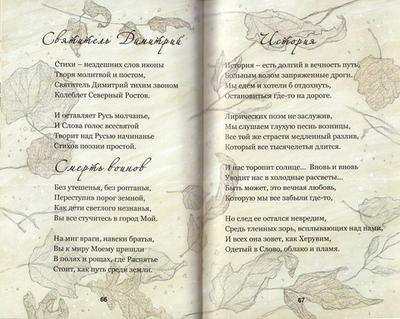 Святитель Димитрий
Стихи – нездешних слов иконы
Творя молитвой и постом,
Святитель Димитрий тихим звоном
Колеблет Северный Ростов.
И оставляет Русь молчанье,
И Слова голос всесвятой
Творит над Русью начинанье
Стихов поэзии простой.
Смерть воинов
Без утешенья, без роптанья,
Переступив порог земной,
Как дети светлого незнанья,
Вы все стучитесь в город Мой.
На миг враги, навеки братья,
Вы к миру Моему пришли
В полях и рощах, где Распятье
Стоит, как путь среди земли.
66
История
История – есть долгий в вечность путь,
Больным волом запряженные дроги.
Мы едем и хотели б отдохнуть,
Остановиться где-то на дороге.
Лирических поэм не заслужив,
Мы слушаем глухую песнь возницы,
Все той же страсти медленный разлив,
Который все тысячелетья длится.
И нас торопит солнце... Вновь и вновь
Уводит в холодные рассветы...
Быть может, это вечная любовь,
Которую мы все забыли где-то,
Но след ее остался невредим,
Средь тленных зорь, всплывающих над нами,
И всех она зовет, как Херувим,
Одетый в Слово, облако и пламя.
67